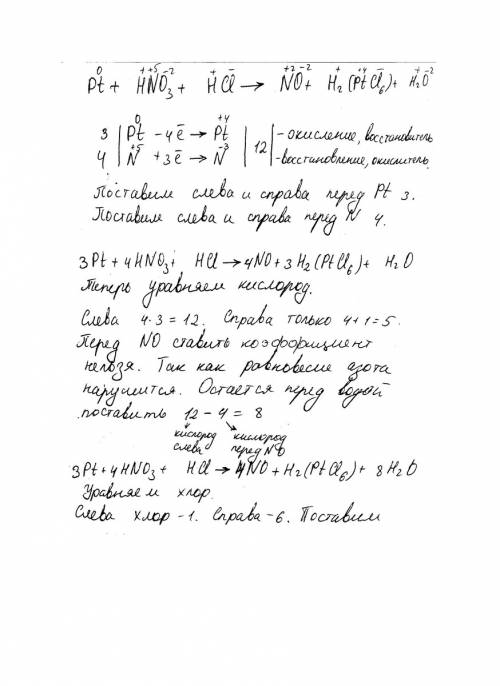 0 + +5 -2 + - +2 -2 + +4 - + -2
Pt + HNO₃ + HCl → NO + H₂(PtCl₆) + H₂O
0 +4
3 | Pt - 4ē → Pt | 12 | - окисление, восстановитель
+5 -3
4 | N + 3ē → N | - восстановление, окислитель
Поставим слева и справа перед Pt 3.
Поставим слева и справа перед N 4.
3Pt + 4HNO₃ + HCl → 4NO + 3H₂(PtCl₆) + H₂O
Теперь уравняем кислород.
Слева 4·3 = 12. Справа только 4+1=5.
Перед NO ставить коэффициент
нельзя. Так как равновесие азота
нарушится. Остается перед водой
поставить 12 - 4 = 8
кислород слева кислород перед NO
3Pt + 4HNO₃ + HCl → 4NO + H₂(PtCl₆) + 8H₂O
Уравняем хлор.
Слева хлор - 1. Справа - 6. Поставим